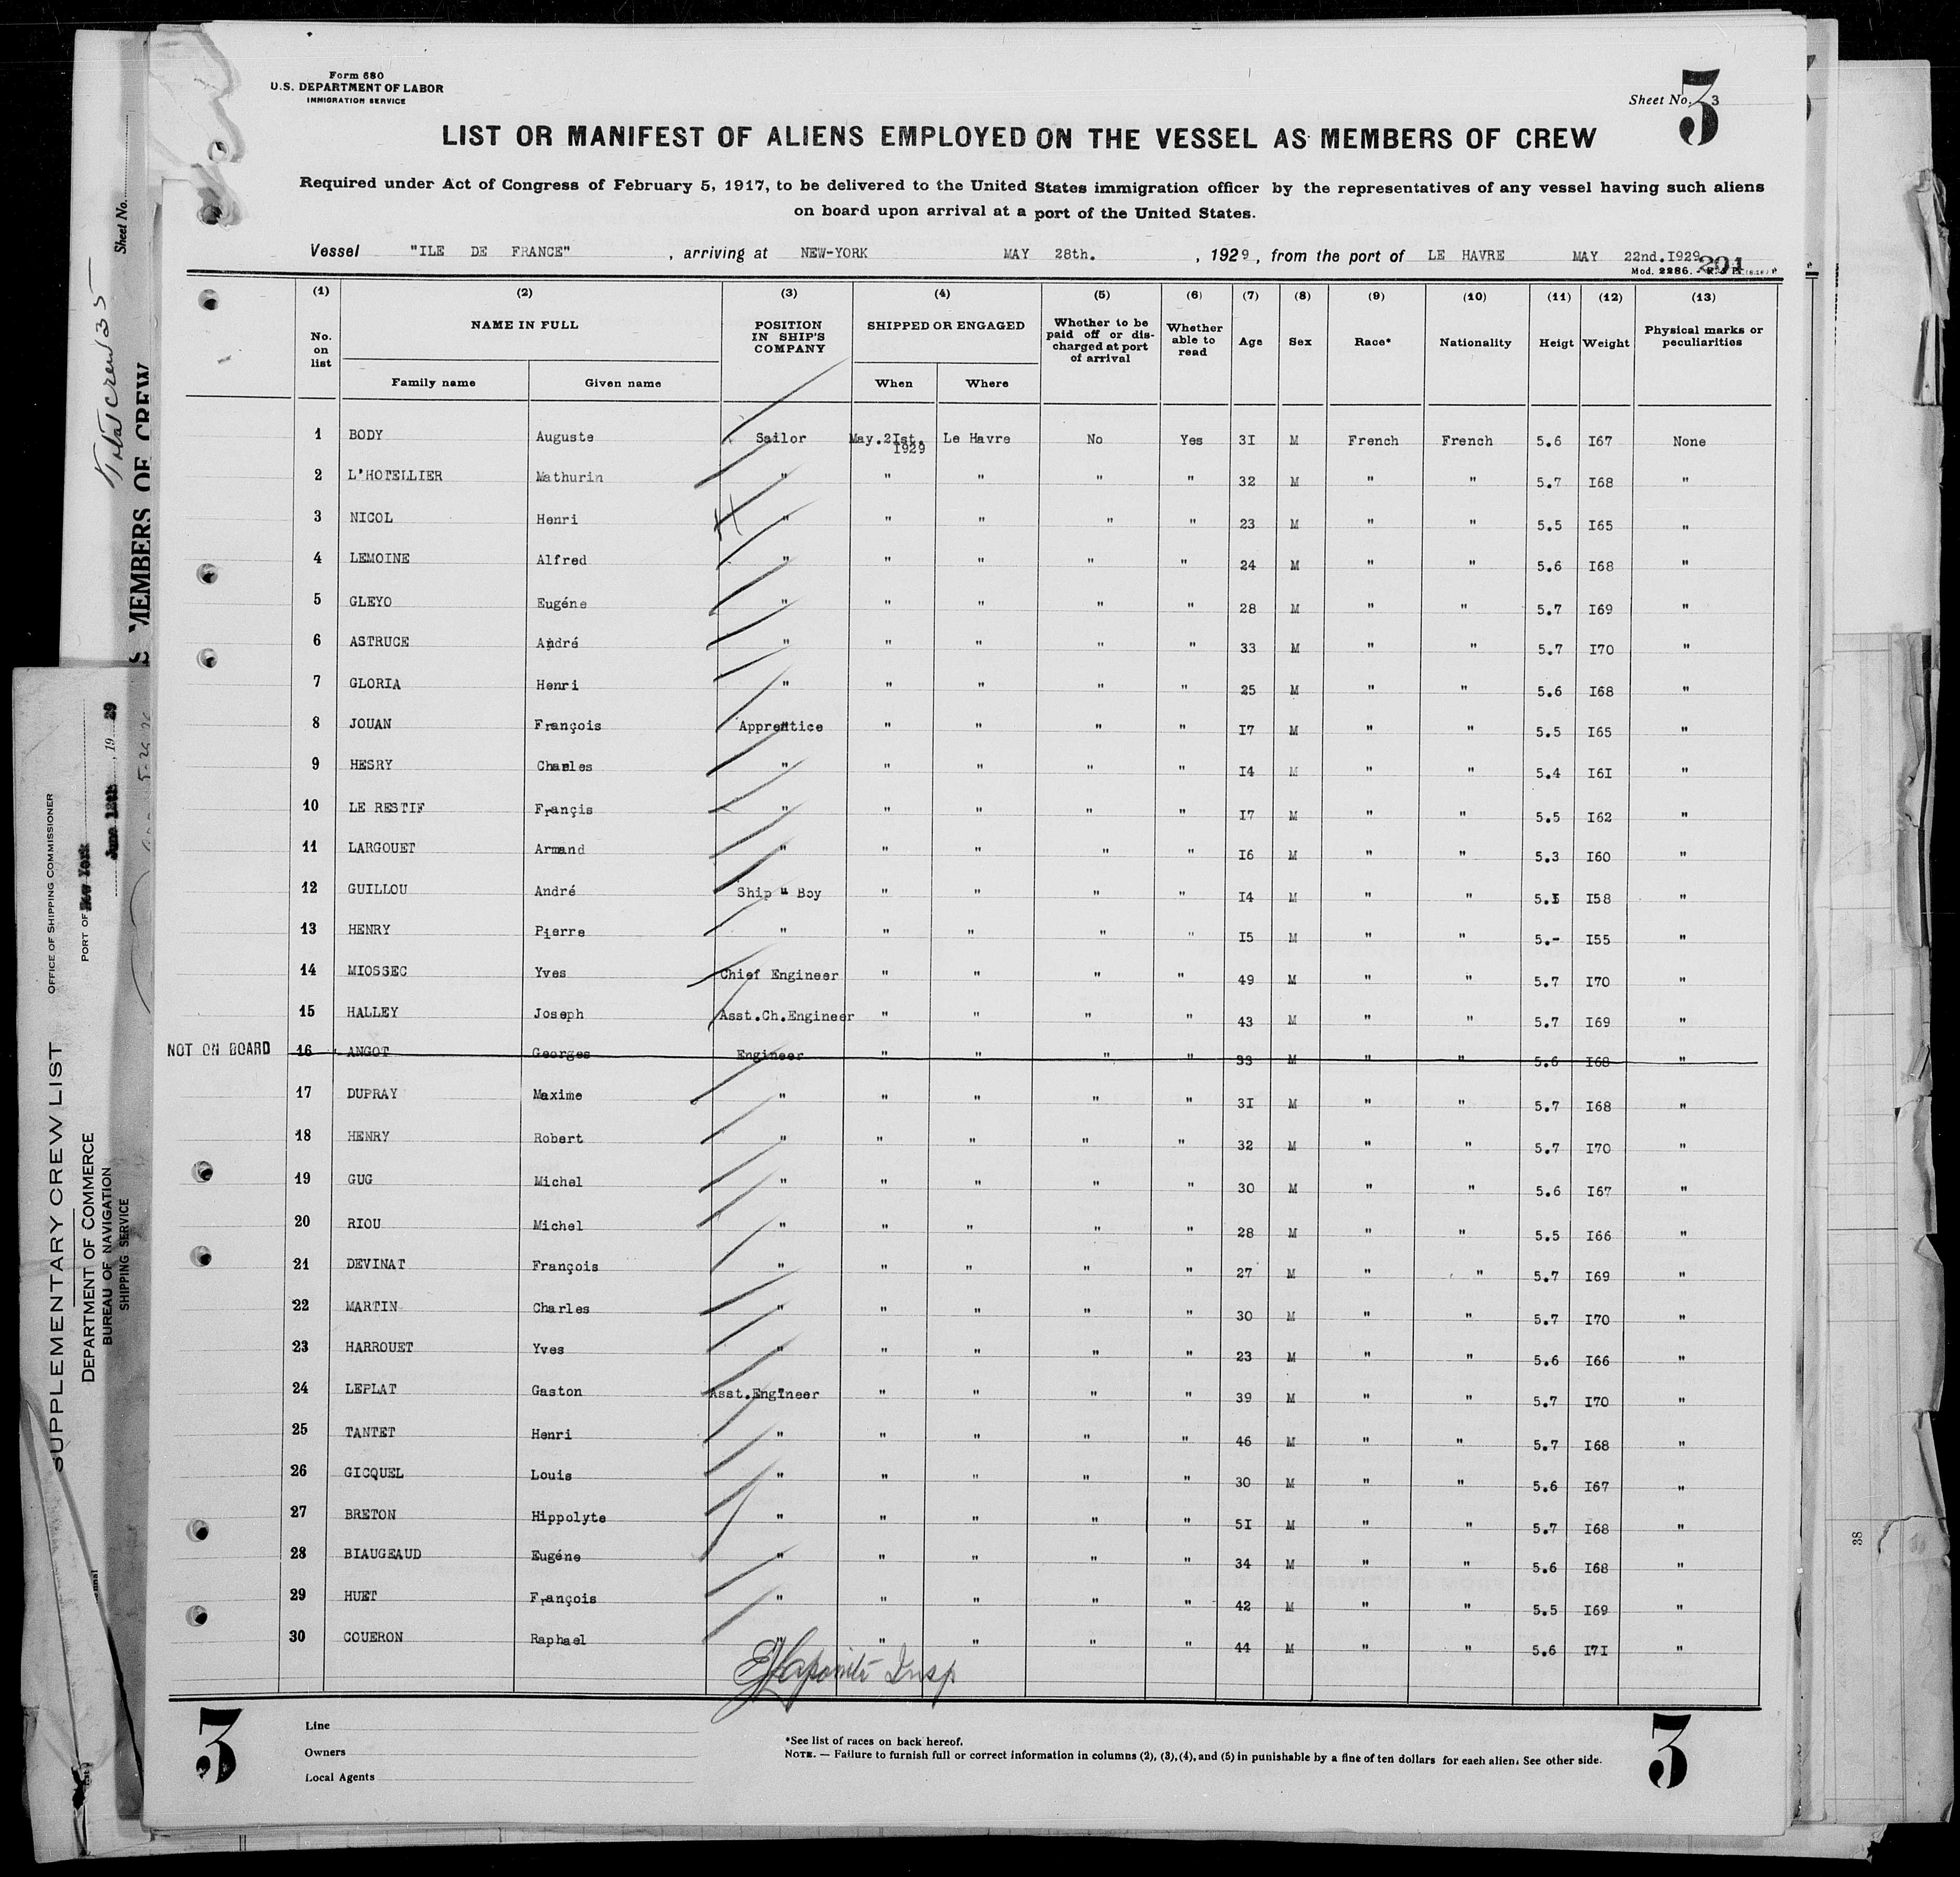 Form 680
U.S. DEPARTMENT OF LABOR
IMMIGRATION SERVICE
Sheet No. 3
3
LIST OR MANIFEST OF ALIENS EMPLOYED ON THE VESSEL AS MEMBERS OF CREW
Required under Act of Congress of February 5, 1917, to be delivered to the United States immigration officer by the representatives of any vessel having such aliens
on board upon arrival at a port of the United States.
Vessel "ILE DE FRANCE" , arriving at NEW-YORK MAY 28th. , 1929, from the port of LE HAVRE MAY 22nd.I929
Mod. 2286. 
(1) (2) (3) (4) (5) (6) (7) (8) (9) (10) (11) (12) (13)
No. on list NAME IN FULL Family name Given name POSITION IN SHIP'S COMPANY SHIPPED OR ENGAGED When Where Whether to be paid off or discharged at port of arrival Whether able to read Age Sex Race* Nationality Heigt Weight Physical marks or peculiarities
1 BODY Auguste Sailor May.2Ist. 1929 Le Havre No Yes 3I M French French 5.6 I67 None
2 L'HOTELLIER Mathurin " " " " " 32 M " " 5.7 I68 "
3 NICOL Henri " " " " " 23 M " " 5.5 I65 "
4 LEMOINE Alfred " " " " " 24 M " " 5.6 I68 "
5 GLEYO Eugéne " " " " " 28 M " " 5.7 I69 "
6 ASTRUCE André " " " " " 33 M " " 5.7 I70 "
7 GLORIA Henri " " " " " 25 M " " 5.6 I68 "
8 JOUAN François Apprentice " " " " I7 M " " 5.5 I65 "
9 HESRY Charles " " " " " I4 M " " 5.4 I6I "
10 LE RESTIF Françis " " " " " I7 M " " 5.5 I62 "
11 LARGOUET Armand " " " " " I6 M " " 5.3 I60 "
12 GUILLOU André Ship " Boy " " " " I4 M " " 5.I I58 "
13 HENRY Pierre " " " " " I5 M " " 5.- I55 "
14 MIOSSEC Yves Chief Engineer " " " " 49 M " " 5.7 I70 "
15 HALLEY Joseph Asst.Ch.Engineer " " " " 43 M " " 5.7 I69 "
NOT ON BOARD 16 ANGOT Georges Engineer " " " " 33 M " " 5.6 I68 "
17 DUPRAY Maxime " " " " " 3I M " " 5.7 I68 "
18 HENRY Robert " " " " " 32 M " " 5.7 I70 "
19 GUG Michel " " " " " 30 M " " 5.6 I67 "
20 RIOU Michel " " " " " 28 M " " 5.5 I66 "
21 DEVINAT François " " " " " 27 M " " 5.7 I69 "
22 MARTIN Charles " " " " " 30 M " " 5.7 I70 "
23 HARROUET Yves " " " " " 23 M " " 5.6 I66 "
24 LEPLAT Gaston Asst.Engineer " " " " 39 M " " 5.7 I70 "
25 TANTET Henri " " " " " 46 M " " 5.7 I68 "
26 GICQUEL Louis " " " " " 30 M " " 5.6 I67 "
27 BRETON Hippolyte " " " " " 5I M " " 5.7 I68 "
28 BIAUGEAUD Eugéne " " " " " 34 M " " 5.6 I68 "
29 HUET François " " " " " 42 M " " 5.5 I69 "
30 COUERON Raphael " " " " " 44 M " " 5.6 I7I "
Insp
3
Line
Owners
Local Agents
*See list of races on back hereof.
NOTE. — Failure to furnish full or correct information in columns (2), (3), (4), and (5) in punishable by a fine of ten dollars for each alien. See other side.
3
Sheet No.
Total crew 35
MEMBERS OF CREW
SUPPLEMENTARY CREW LIST
DEPARTMENT OF COMMERCE
BUREAU OF NAVIGATION
SHIPPING SERVICE
OFFICE OF SHIPPING COMMISSIONER
PORT OF New York
June 12th , 19 29
38